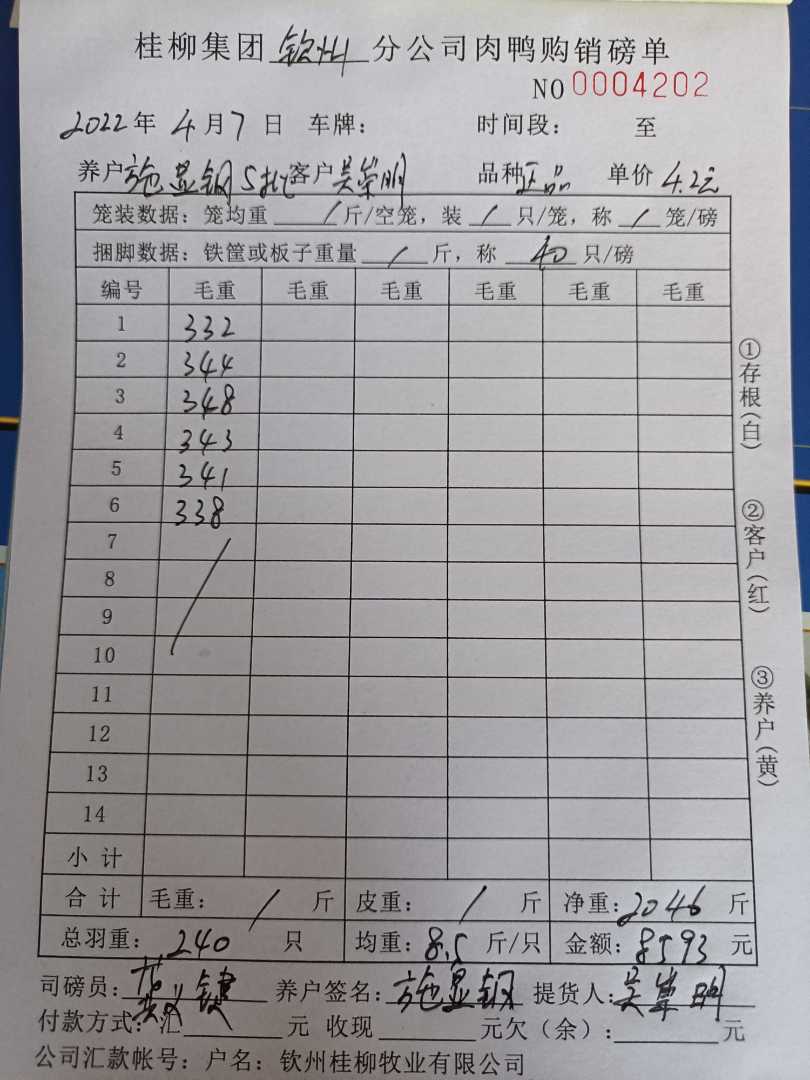 桂柳集团 钦州 分公司肉鸭购销磅单
NO 0004202
2022年 4月7日 车牌： 时间段： 至
养户 施显钢 5批 客户 吴崇明 品种 正品 单价 4.2元
笼装数据：笼均重 / 斤/空笼，装 / 只/笼，称 / 笼/磅
捆脚数据：铁筐或板子重量 / 斤，称 40 只/磅
编号 毛重 毛重 毛重 毛重 毛重 毛重
1 332
2 344
3 348
4 343
5 341
6 338
7
8
9
10
11
12
13
14
小计
合计 毛重： / 斤 皮重： / 斤 净重：2046 斤
总羽重： 240 只 均重：8.5 斤/只 金额：8593 元
司磅员： 养户签名：施显钢 提货人：吴崇明
付款方式：汇 元 收现 元欠（余）： 元
公司汇款帐号：户名：钦州桂柳牧业有限公司
①存根（白）
②客户（红）
③养户（黄）